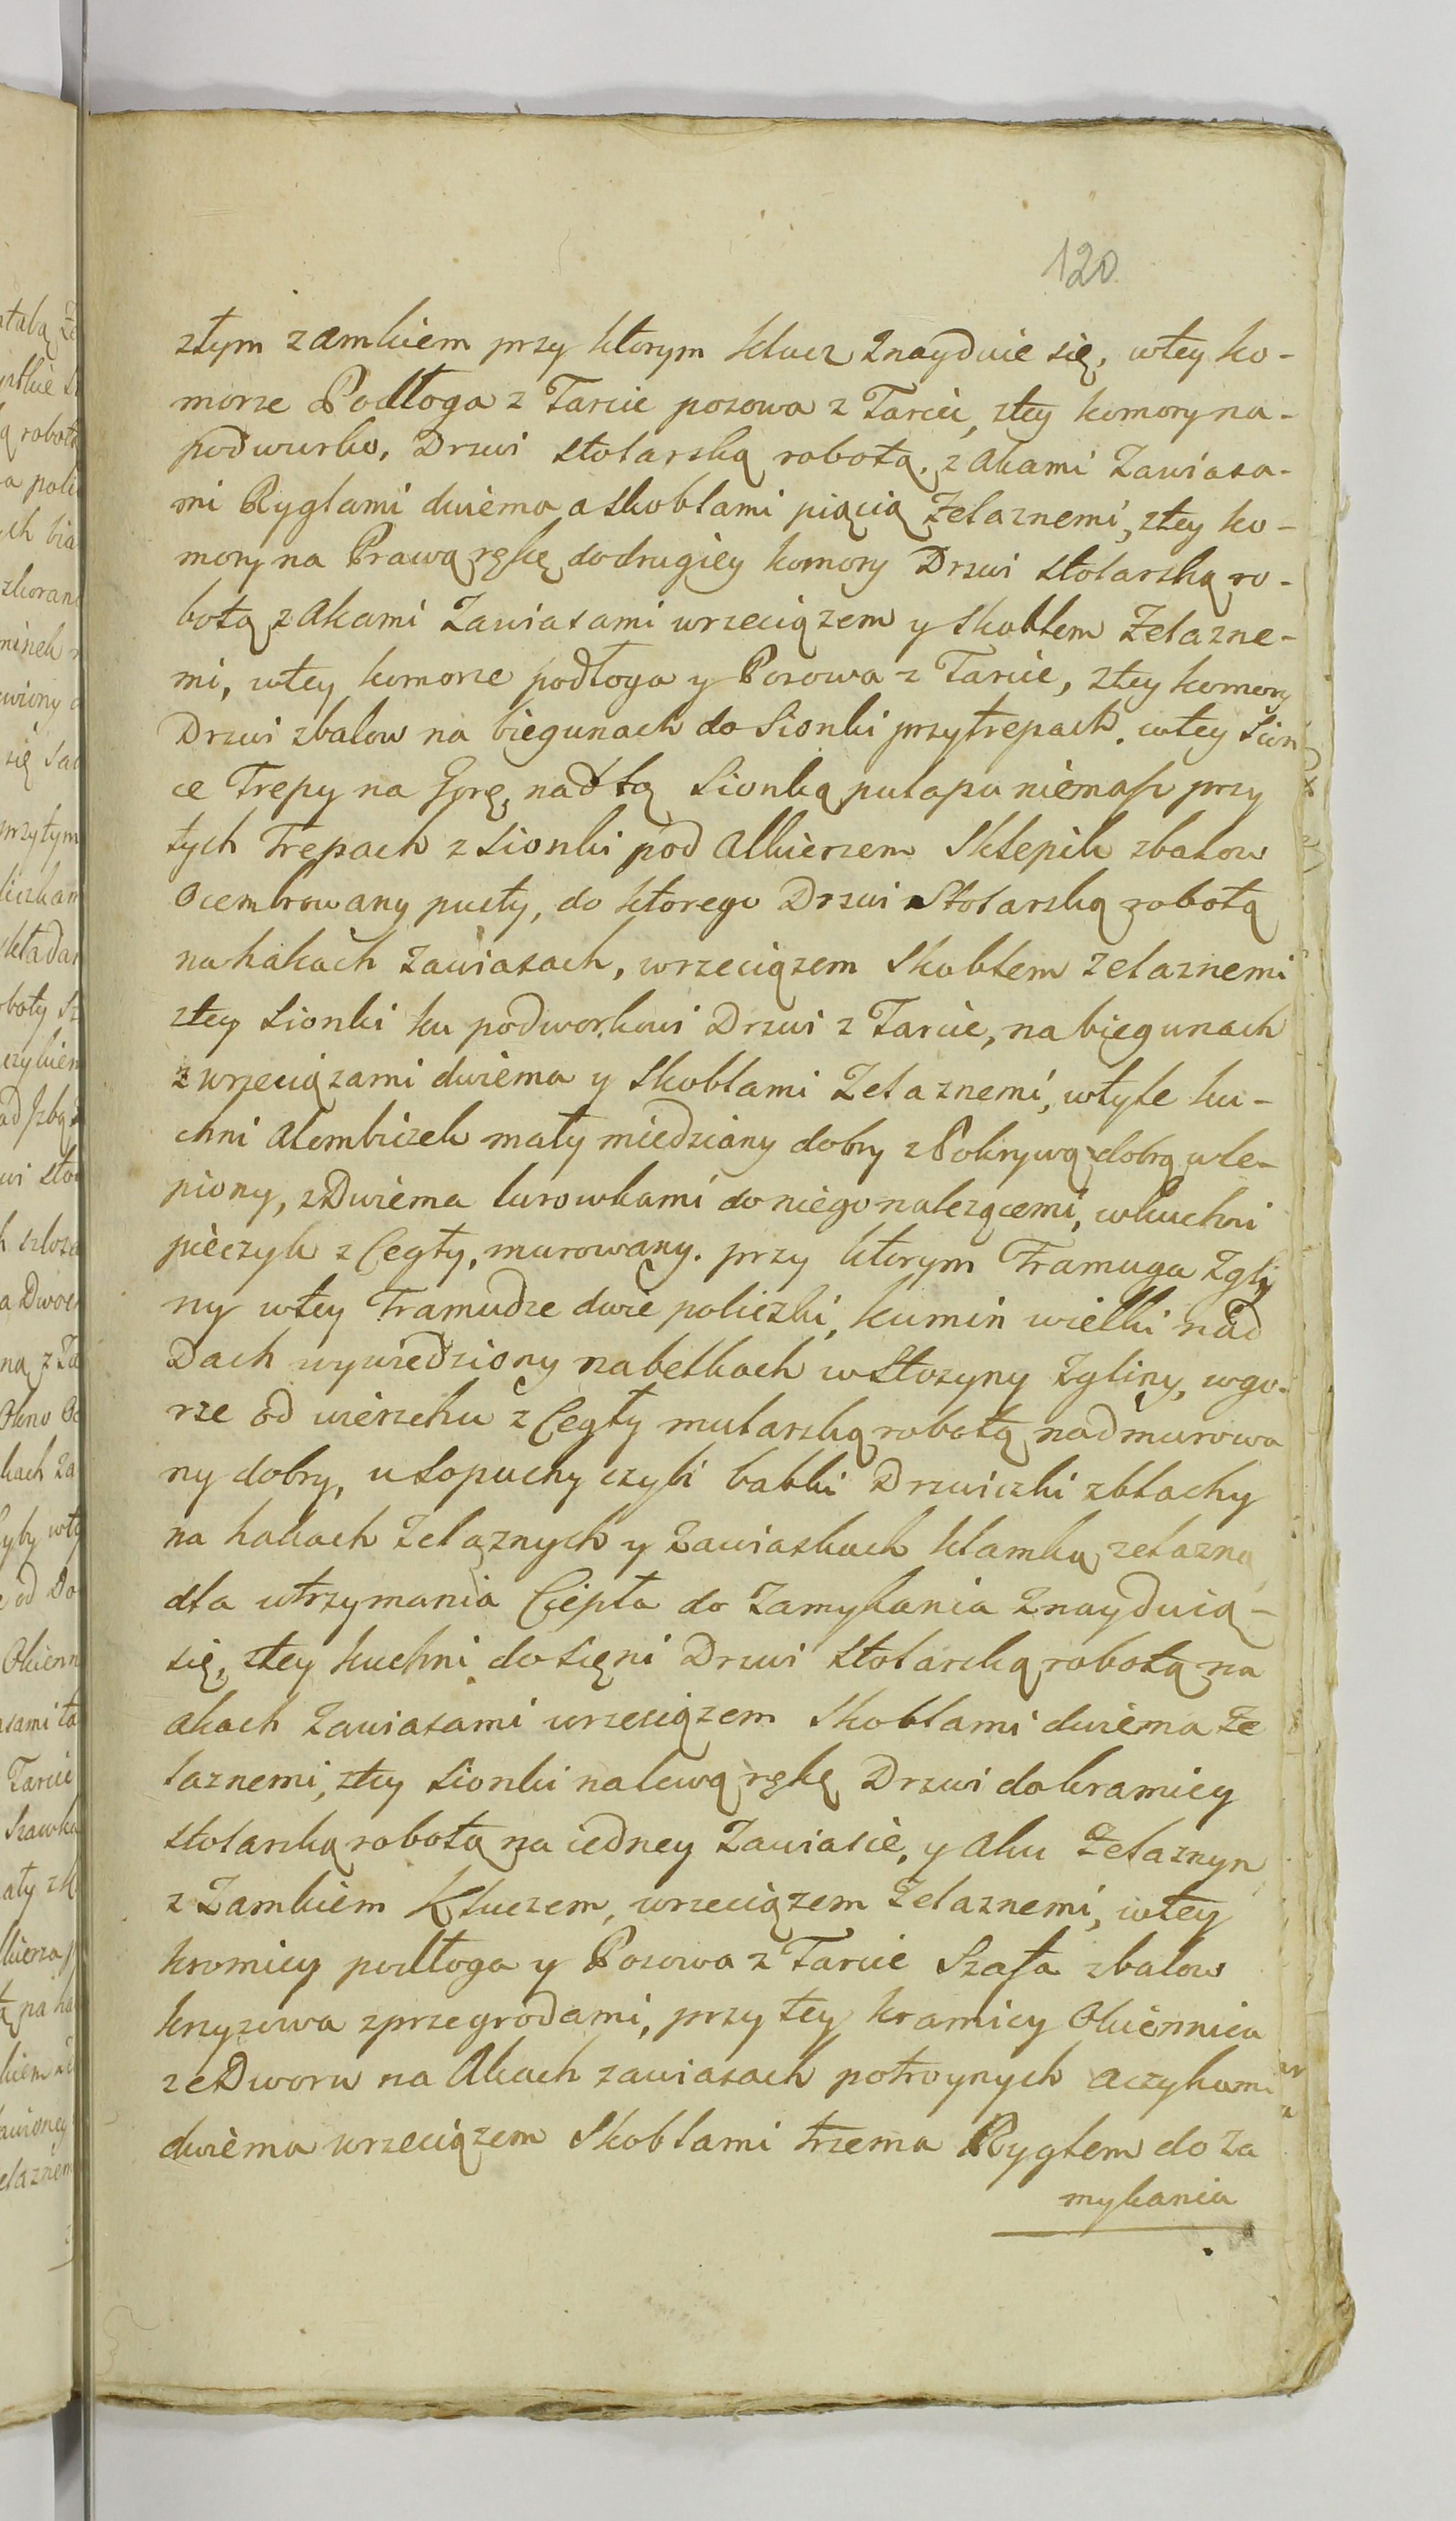 120
złym zamkiem przy ktorym klucz znayduie się, wtey ko-
morze Podłoga z Tarcic posowa z Tarcic, ztey komory na-
podwurko, Drzwi stolarską robotą, z Akami Zawiasa-
mi Ryglami dwiema a skoblami piącią Żelaznemi, ztey ko-
mory na Prawą rękę do drugiey komory Drzwi stolarską ro-
botą z Akami Zawiasami wrzeciązem y skoblem Żelazne-
mi, wtey komorze podłoga y Posowa z Tarcic, ztey komory
Drzwi zbalow na biegunach do Sionki przytrepach, wtey Sion
ce Trepy na Gorę, nad tą Sionką pułapu niemasz przy
tych Trepach z sionki pod Alkierzem Sklepik zbalow
Ocembrowany pusty, do ktorego Drzwi Stolarską robotą
na hakach zawiasach, wrzeciązem Skoblem zelaznemi
ztey Sionki ku podworkowi Drzwi z Tarcic, na biegunach
z wrzeciązami dwiema y Skoblami Zelaznemi, wtyle ku-
chni Alembiczek mały miedziany dobry z Pokrywą dobrą wle-
piony, z Dwiema lurowkami do niego nalezącemi, wkuchni
pieczyk z Cegły, murowany. przy ktorym Framuga z gli
ny wtey Framudze dwie policzki, kumin wielki nad
Dach wywiedziony na belkach w Słozyny z gliny, w go-
rze od wierzchu z Cegły mularską robotą nadmurowa
ny dobry, u Łopuchy czyli babki Drzwiczki zblachy
na hakach zelaznych y zawiaskach klamką zelazną
dla utrzymania Ciepła do Zamykania znayduią-
się, ztey kuchni do sięni Drzwi stolarską robotą na
akach Zawiasami wrzeciązem Skoblami dwiema że
laznemi, ztey Sionki na lewą rękę Drzwi do kramicy
stolarską robotą na iedney Zawiasie, y Aku Żelaznyn
z Zamkiem Kluczem, wrzeciązem Zelaznemi, wtey
kromicy podłoga y Posowa z Tarcic Szafa zbalow
krzyzowa zprzegrodami, przy tey kramicy Okiennica
ze Dworu na Akach zawiasach potroynych aczykami
dwiema wrzeciązem Skoblami trzema Ryglem do za
mykania